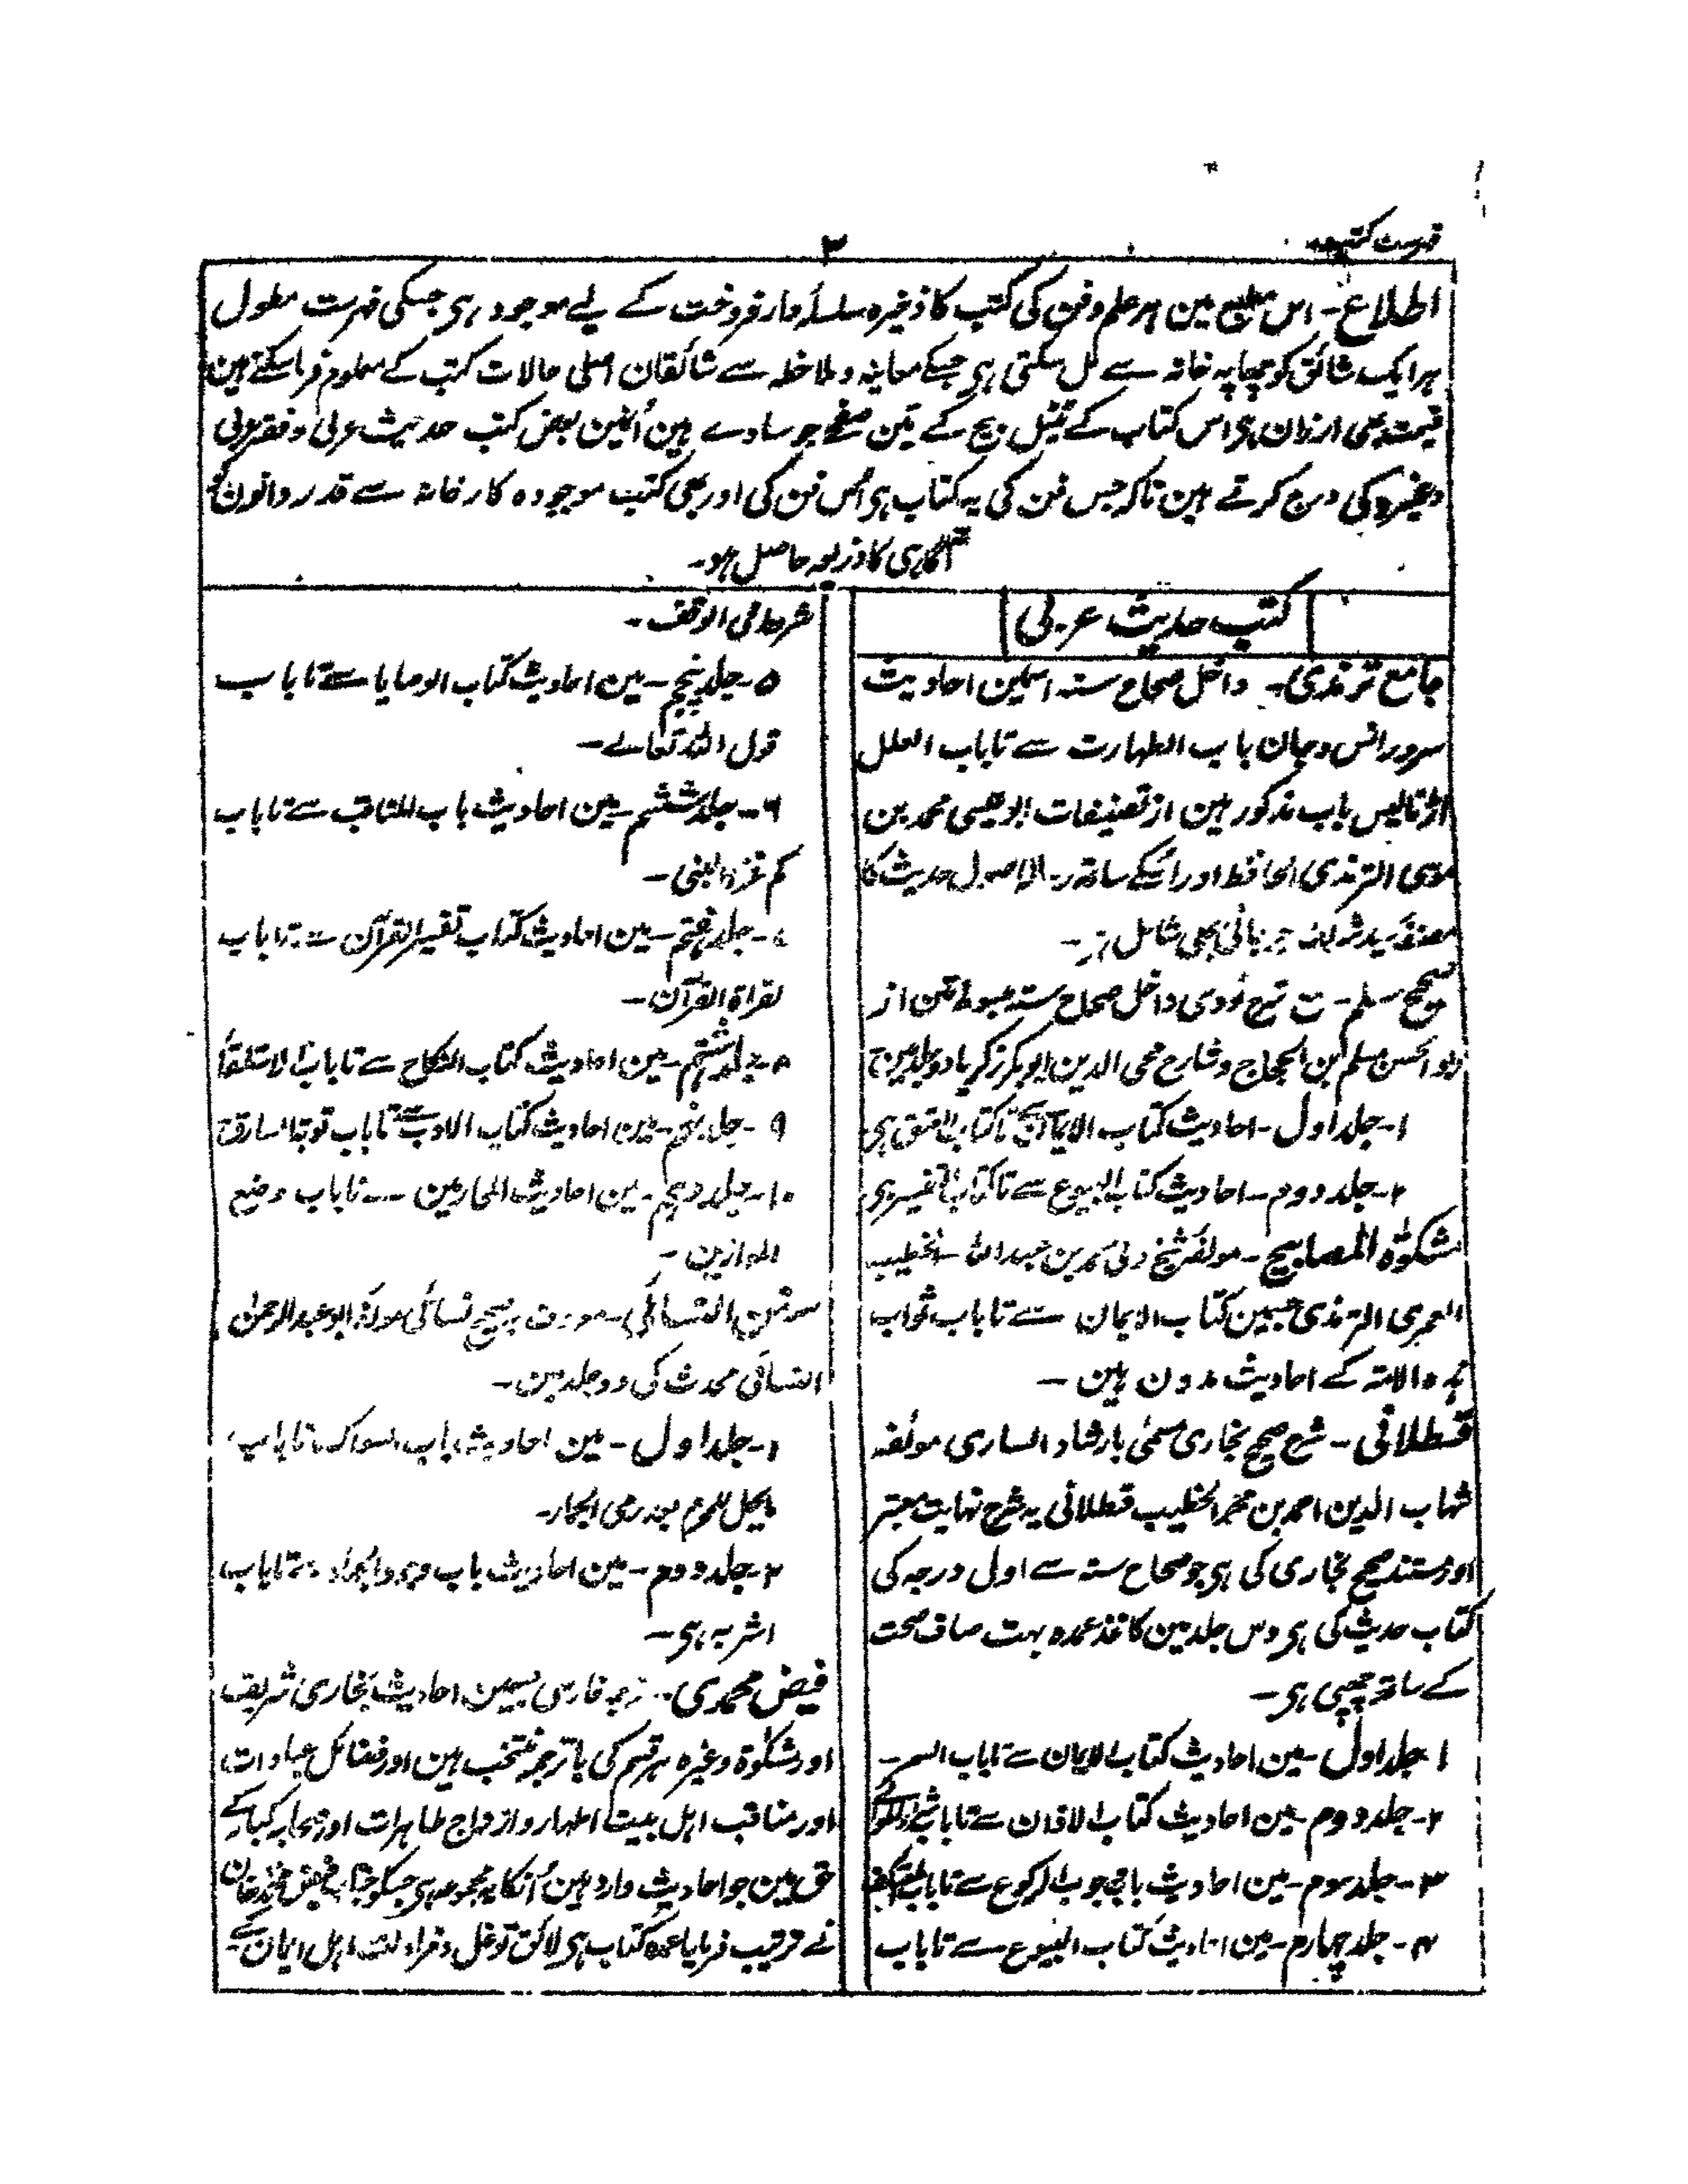 فہرست کتب
۳
اطلاع - اس مطبع مین ہر علم و فن کی کتب کا ذخیرہ سلسلہ وار فروخت کے لیے موجود ہی جسکی فہرست مطول
ہر ایک شائق کو چھاپہ خانہ سے مل سکتی ہی جسکے معاینہ و ملاحظہ سے شائقان اصلی حالات کتب کے معلوم فرما سکتے ہین
قیمت بھی ارزان ہی اس کتاب کے ٹیٹل پیج کے تین صفحے جو سادے ہین اُنمین بعض کتب حدیث عربی و فقہ عربی
وغیرہ کی درج کرتے ہین تاکہ جس فن کی یہ کتاب ہی اُس فن کی اور بھی کتب موجودہ کارخانہ سے قدر دانون کو
آگاہی کا ذریعہ حاصل ہو۔
کتب حدیث عربی
جامع ترمذی - داخل صحاح ستہ اسمین احادیث
سرور انس و جان باب الطہارت سے تا باب العلل
اڑتالیس باب مذکور ہین از تصنیفات ابو عیسی محمد بن
موسی الترمذی الحافظ اور اُسکے ساتھ رسالہ اصول حدیث کا
مصنفہ سید شریف جرجانی بھی شامل ہی۔
صحیح مسلم - مع شرح نووی داخل صحاح ستہ مبسوط متن از
ابو الحسن مسلم بن الحجاج و شارح محی الدین ابو بکر زکریا دو جلد مین
۱- جلد اول - احادیث کتاب الایمان سے تا کتاب العتق ہی
۲- جلد دوم - احادیث کتاب البیوع سے تا کتاب التفسیر ہی
مشکوٰۃ المصابیح - مولفہ شیخ ولی محمد بن عبد اللہ الخطیب
العمری الترمذی جسمین کتاب الایمان سے تا باب ثواب
ہذہ الامتہ کے احادیث مدون ہین -
قسطلانی - شرح صحیح بخاری مسمیٰ بارشاد الساری مولفہ
شہاب الدین احمد بن محمد الخطیب قسطلانی یہ شرح نہایت معتبر
اور مستند صحیح بخاری کی ہی جو صحاح ستہ سے اول درجہ کی
کتاب حدیث کی ہی دس جلد مین کاغذ عمدہ بہت صاف صحت
کے ساتھ چھپی ہی -
۱- جلد اول - مین احادیث کتاب الایمان سے تا باب السمر -
۲- جلد دوم - مین احادیث کتاب الاذان سے تا باب
۳- جلد سوم - مین احادیث باب وجوب الرکوع سے تا باب
۴- جلد چہارم - مین احادیث کتاب البیوع سے تا باب
شروط فی الوقف -
۵- جلد پنجم - مین احادیث کتاب الوصایا سے تا باب
قول اللہ تعالے -
۶- جلد ششم - مین احادیث باب المناقب سے تا باب
کم غزا النبی -
۷- جلد ہفتم - مین احادیث کتاب تفسیر القرآن سے تا باب
لقراۃ القرآن -
۸- جلد ہشتم - مین احادیث کتاب النکاح سے تا باب الاستلقا
۹- جلد نہم - مین احادیث کتاب الادب سے تا باب توبۃ السارق
۱۰- جلد دہم - مین احادیث المحاربین سے تا باب وضع
الموازین -
سنن النسائی - معروف بہ صحیح نسائی مولفہ ابو عبد الرحمن
النسائی محدث کی دو جلد مین -
۱- جلد اول - مین احادیث باب السواک تا باب
ما یحل للمحرم بعد رمی الجمار -
۲- جلد دوم - مین احادیث باب وجوب الجہاد سے تا باب
اشربہ ہی -
فیض محمدی - ترجمہ فارسی جسمین احادیث بخاری شریف
اور مشکوٰۃ وغیرہ ہر قسم کی با ترجمہ منتخب ہین اور فضائل عبادات
اور مناقب اہل بیت اطہار و ازواج طاہرات اور صحابہ کبار کے
حق مین جو احادیث وارد ہین اُنکا یہ مجموعہ ہی جسکو جناب فیض محمد خان
نے ترتیب فرمایا عمدہ کتاب ہی لائق توغل و مزاولت اہل ایمان کے